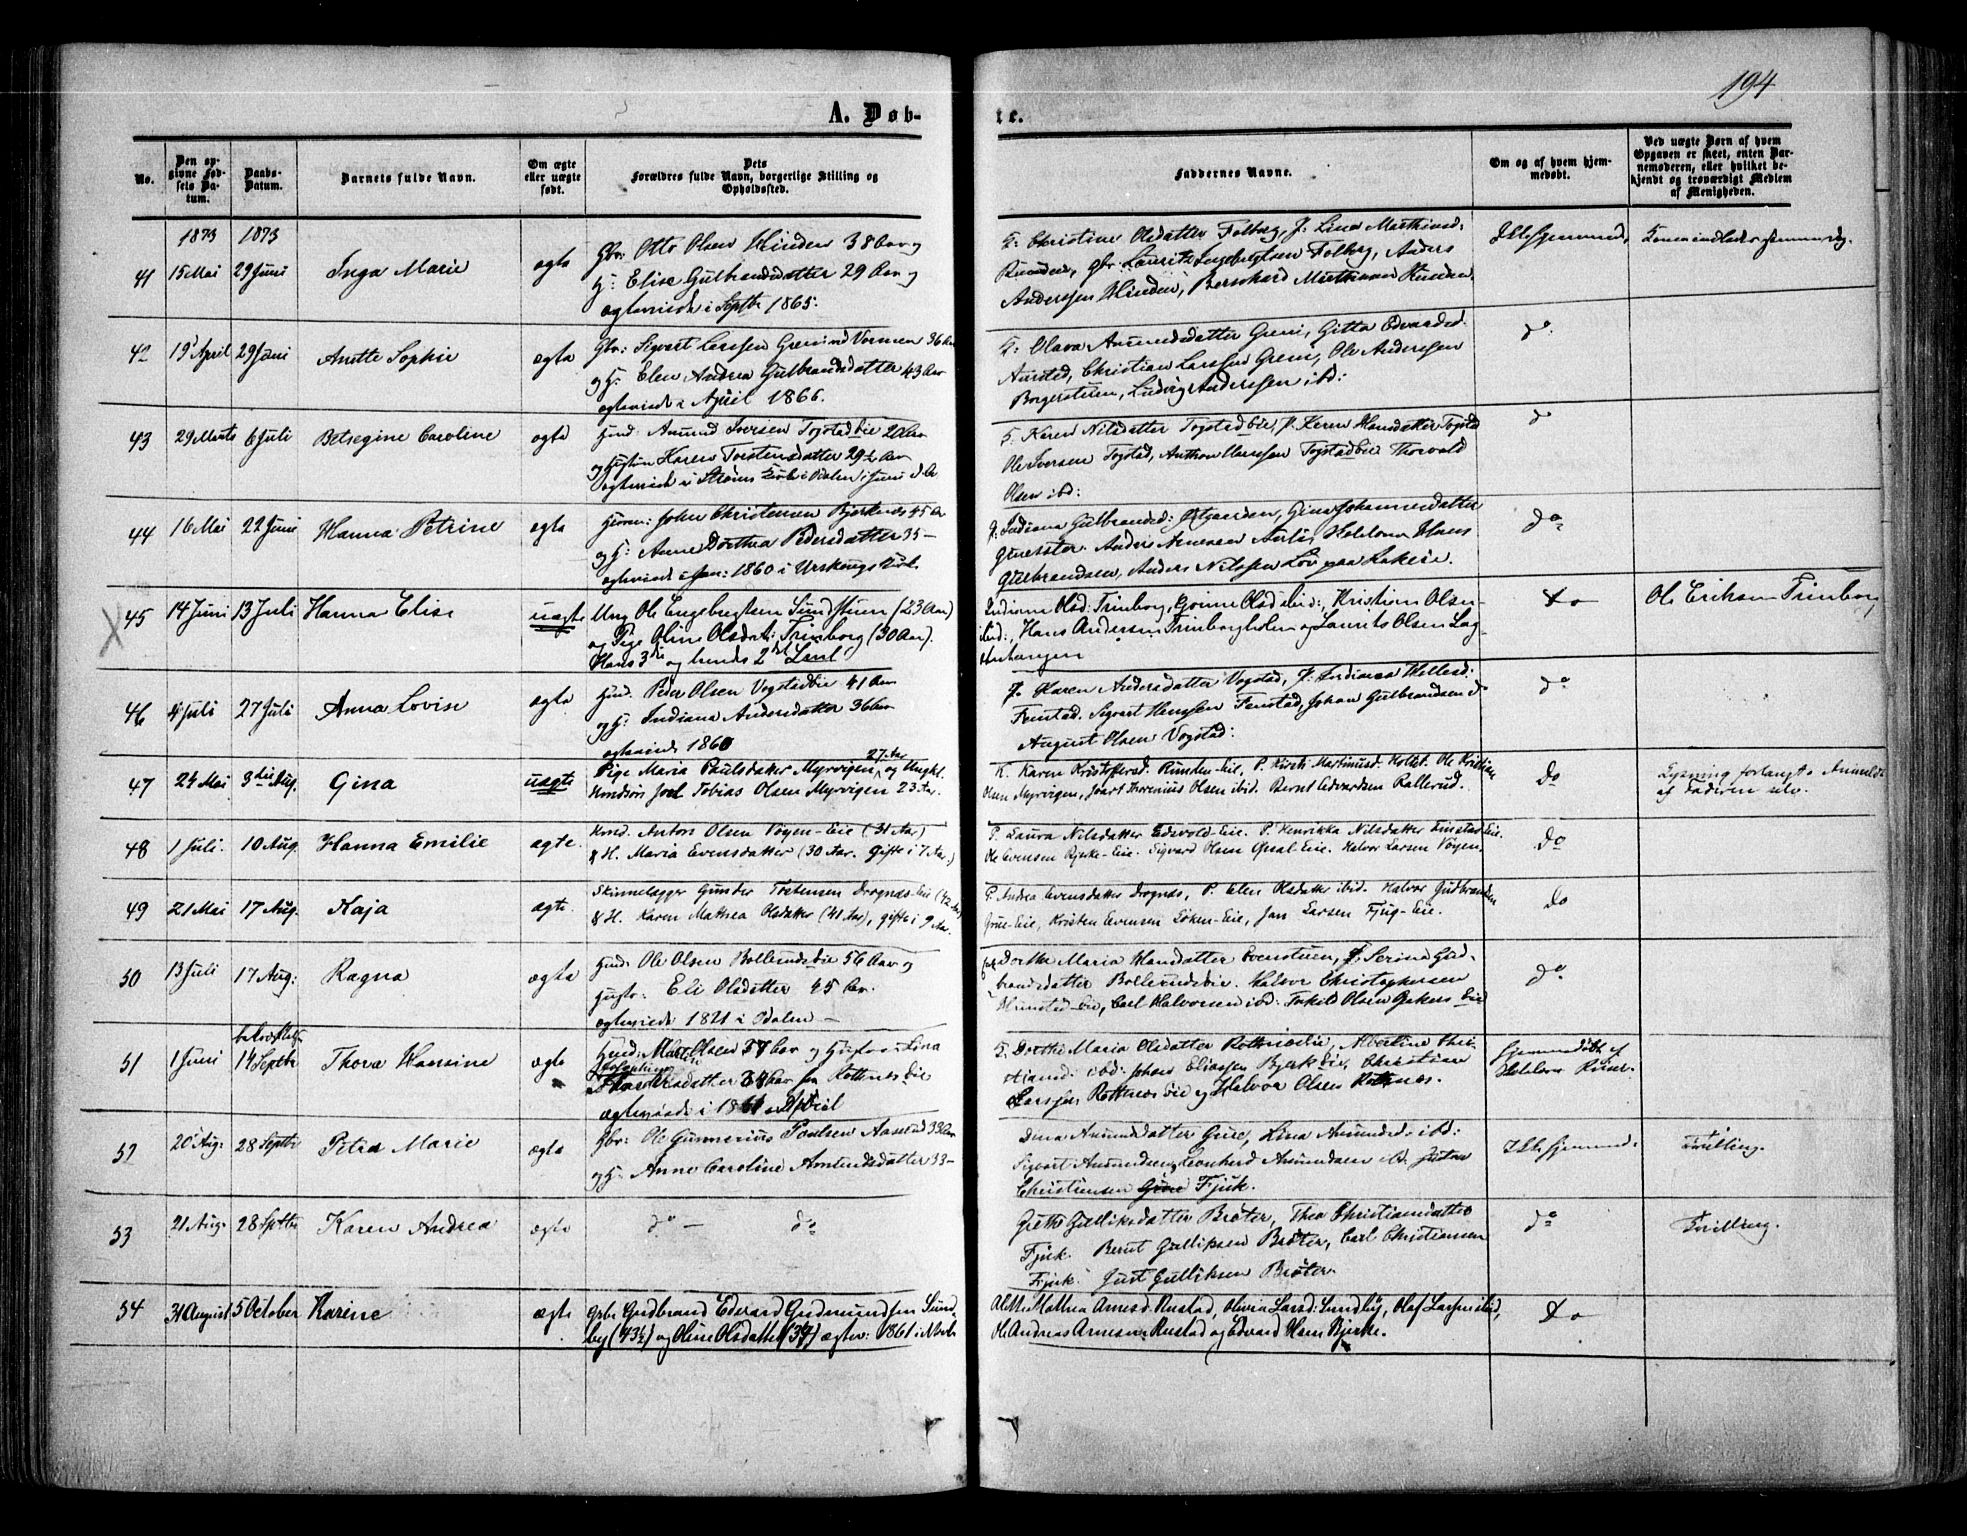 194
A. Døb-
te.
No.
Den opgivne Fødsels Datum.
Daabs-Datum.
Barnets fulde Navn.
Om ægte eller uægte født.
Dets Forældres fulde Navn, borgerlige Stilling og Opholdssted.
Faddernes Navne.
Om og af hvem hjemmedøbt.
Ved uægte Børn af hvem Opgaven er skeet, enten Barnemoderen, eller hvilket bekjendt og troværdigt Medlem af Menigheden.
1873 1873
41 15 Mai 29 Juni Inga Marie ægte
Gbr: Otto Olsen Hinden 38 Aar og
H: Elise Gulbrandsdatter 29 Aar og
ægteviede i Septbr 1865.
Christine Olsdatter Folberg, J: Lina Marthinsd:
gbr. Lauritz Folberg, Anders
Anderssen Hinden, Bernhard
Ikke hjemmed.
42 19 April 29 Juni Anette Sophie ægte
Gbr: Sigvart Larssen Greni ved Vormen 36 Aar
og H: Elen Andrea Gulbrandsdatter 43 Aar
ægteviede i April 1866.
G: Olava Amundsdatter Greni, Gitta Edvardsd.
Aarstad, Christian Larssen Greni, Ole Anderssen
Borgerstuen, Ludvig Anderssen ibd:
do
43 29 Marts 6 Juli Betsegine Caroline ægte
Hmd: Amund Iversen Togstadeie 20 Aar
og Hustru Karen Torstensdatter 29½ Aar
ægteviede i Strøms Kirke i Odalen i Juni d.A.
G. Karen Nilsdatter Togstadeie, P. Karen Hansdatter Togstad
Ole Iversen Togstad, Anthon Hanssen Togstadeie Thorvald
Olsen ibd:
do
44 16 Mai 22 Juni Hanna Petrine ægte
John Christensen Bjerknes 45 Ar
og H: Anne Dorthea Pedersdatter 35 —
ægteviede i Jan: 1860 i Urskougs Kirke
J: Indiana Gulbrandsd: Gina Johannesdatter
Anders Arnesen Hans
Gulbrandsen, Anders Nilssen
do
X 45 14 Juni 13 Juli Hanna Elise uægte
Ung. Ole Engebregtsen Sundstuen (23 Aar)
og Pige Oline Olsdat: Trinborg (30 Aar).
Hans 3die og hendes 2det Leiermaal
Indiane Olsd: Trinborg, Gorine Olsd ibid:, Kristian Olsen
ibid:, Hans Andersen Trinborgholen og Laurits Olsen
do
Ole Eriksen Trinborg
46 4 Juli 27 Juli Anna Lovise ægte
Hmd. Peder Olsen Vogstadeie 41 Aar
og H: Indiana Andersdatter 36 Aar
ægteviede 1860
J. Karen Andersdatter Vogstad, J: Indiana
Fenstad. Sigvart Hanssen Fenstad, Johan Gulbrandsen do
August Olsen Vogstad:
do
47 24 Mai 3die Aug. Gina uægte
Pige Maria Paulsdatter Myrvigen 27 Aar og Ungkl.
Tobias Olsen Myrvigen 23 Aar.
K. Karen Kristoffersd. Runden-Eie, P. Kirsti Martinusd. Ole Kristian
Olsen Myrvigen, Olsen ibid. Bernt Edvardsen Rallerud.
do
Lysning forlangt. Anmeldt
af Faderen selv.
48 1 Juli. 10 Aug. Hanna Emilie ægte.
Hmd. Anton Olsen Vøyen-Eie (31 Aar)
& H. Maria Evensdatter (30 Aar. Gifte i 7 Aar.)
P. Laura Nilsdatter Edsvold-Eie. P. Henrikka Nilsdatter Finstad-Eie.
Ole Evensen Bjerke-Eie. Sigvard Olsen Halvor Larsen Vøyen.
do
49 21 Mai 17 Aug. Kaja ægte.
Skinnelægger Gunder Tostensen Drognæs-Eie (42 Aar)
& H. Karen Mathea Olsdatter (41 Aar), gifte i 9 Aar.
P. Andrea Evensdatter Drognæs, P. Elen Olsdatter ibid. Halvor Gudbrandsen
Grue-Eie, Kristen Evensen Løken-Eie, Jan Larsen Fjug-Eie.
do
50 13 Juli 17 Aug: Ragna ægte
Hmd. Ole Olsen Bollerudseie 56 Aar og
Hustr: Eli Olsdatter 45 Aar.
ægteviede 1821 i Odalen —
Dorthe Maria Hansdatter Evenstuen, J. Serina Gud-
brandsdatter Bollerudseie. Halvor Christophersen
Carl Halvorsen ibd: Tokild Olsen
do
51 1 Juni 14 Septbr Thora Hansine ægte
Hmd: Olsen 37 Aar og Hustru: Lina
datter 34 Aar fra Rottnes eie
ægteviede i 1861 April
G. Dorthe Maria Olsdatter Rottneseie, Albertine Chri-
stiansd: ibd: Johan Eliassen Bjerk eie, Christian
Larssen Rottnes eie og Halvor Olsen Rottnes.
Hjemmedøbt af
52 20 Aug: 28 Septbr Petra Marie ægte
Gbr: Ole Gunnerius Poulsen Aaserud 33 Aar
og H: Anne Caroline Amundsdatter 33 —
Dina Amundsdatter Grue, Lina Amundsd. ibd:
Sigvart Amundsen, Leonhard Amundsen ibd. Gustav
Christiansen Fjuk.
Ikke hjemmd.
Tvilling.
53 21 Aug. 28 Septbr Karen Andrea ægte
do — do
Grethe Gulliksdatter Brøter, Thea Christiansdatter
Fjuk. Bernt Gulliksen Brøter, Carl Christiansen
Fjuk. Just Gulliksen Brøter.
do
Tvilling.
54 31 August 5 October Karine ægte
Gbr: Gudbrand Edvard Gudmundsen Sund-
by (43½) og Oline Olsdatter (37) ægtev: 1861 i
Alethe Mathea Arnesd: Rustad, Olivia Larsd: Sundby, Olaf Larsen ibid,
Ole Andreas Arnesen Rustad og Edvard Hans. Bjerke.
do